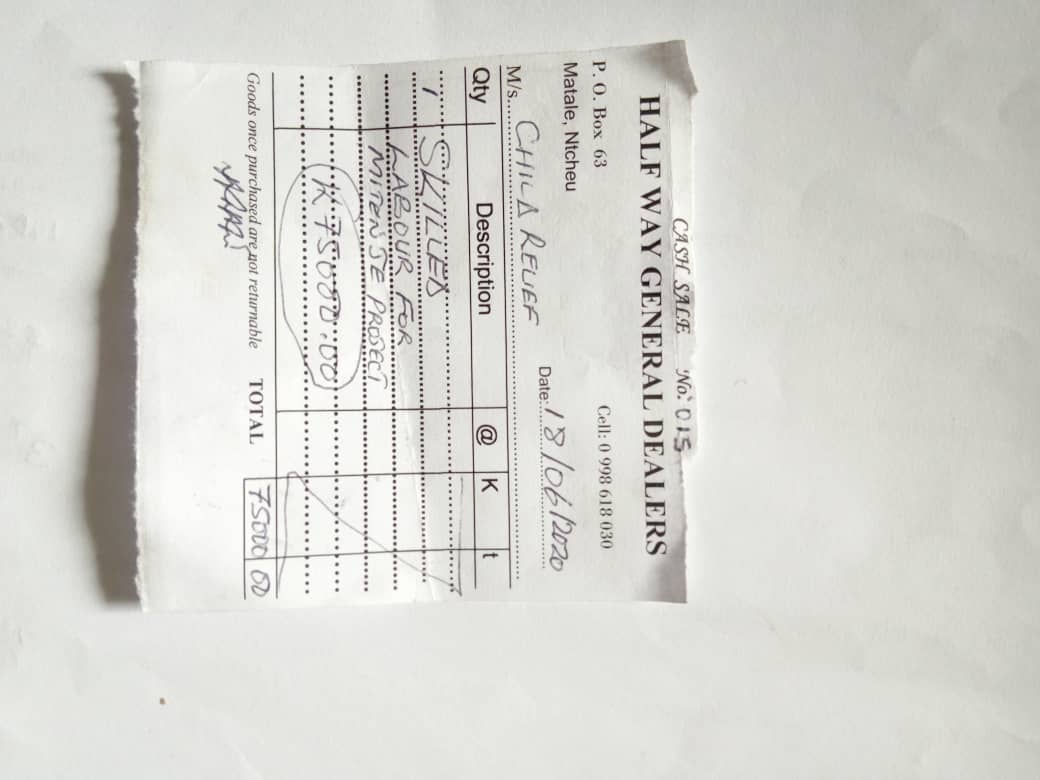 CASH SALE No: 015
HALF WAY GENERAL DEALERS
P. O. Box 63 Cell: 0 998 618 030
Matale, Ntcheu
Date: 18/06/2020
M/s. CHILD RELIEF
Qty Description @ K t
1 SKILLED
LABOUR FOR
MITENJE PROJECT
K75000:00
Goods once purchased are not returnable TOTAL 75000 00